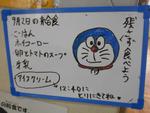 9月2日の給食
ごはん
ホイコーロー
卵とトマトのスープ
牛乳
アイスクリーム
12:40に
とりにきてね。
残さず食べよう